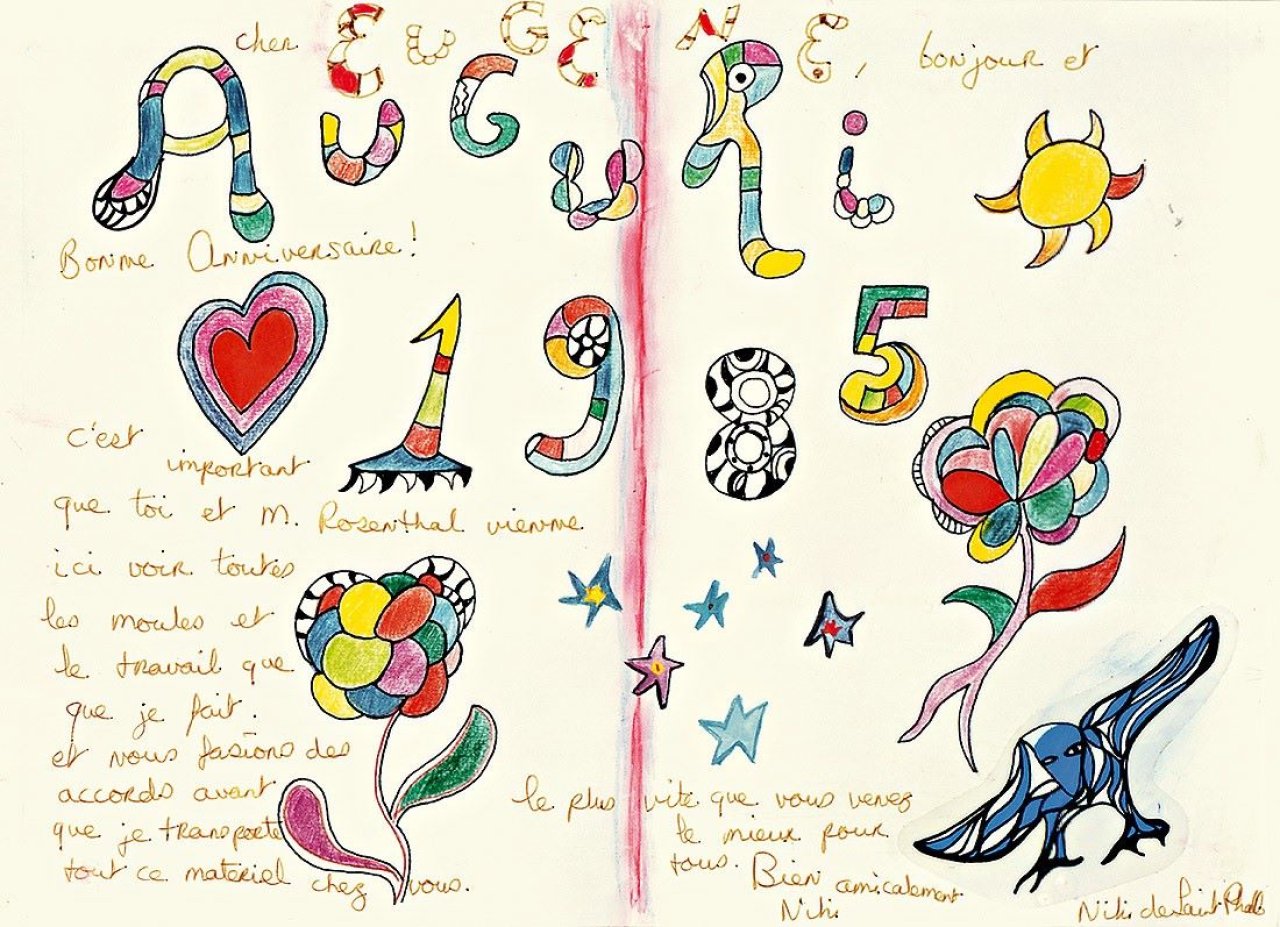 cher EUGENE, bonjour et
AUGURi
Bonne Anniversaire!
1985
c'est
important
que toi et M. Rosenthal vienne
ici voir toutes
les moules et
le travail que
que je fait.
et nous fasions des
accords avant
que je transporte
tout ce materiel chez vous.
le plus vite que vous venez
le mieux pour
tous. Bien amicalement
Niki
Niki de Saint Phalle